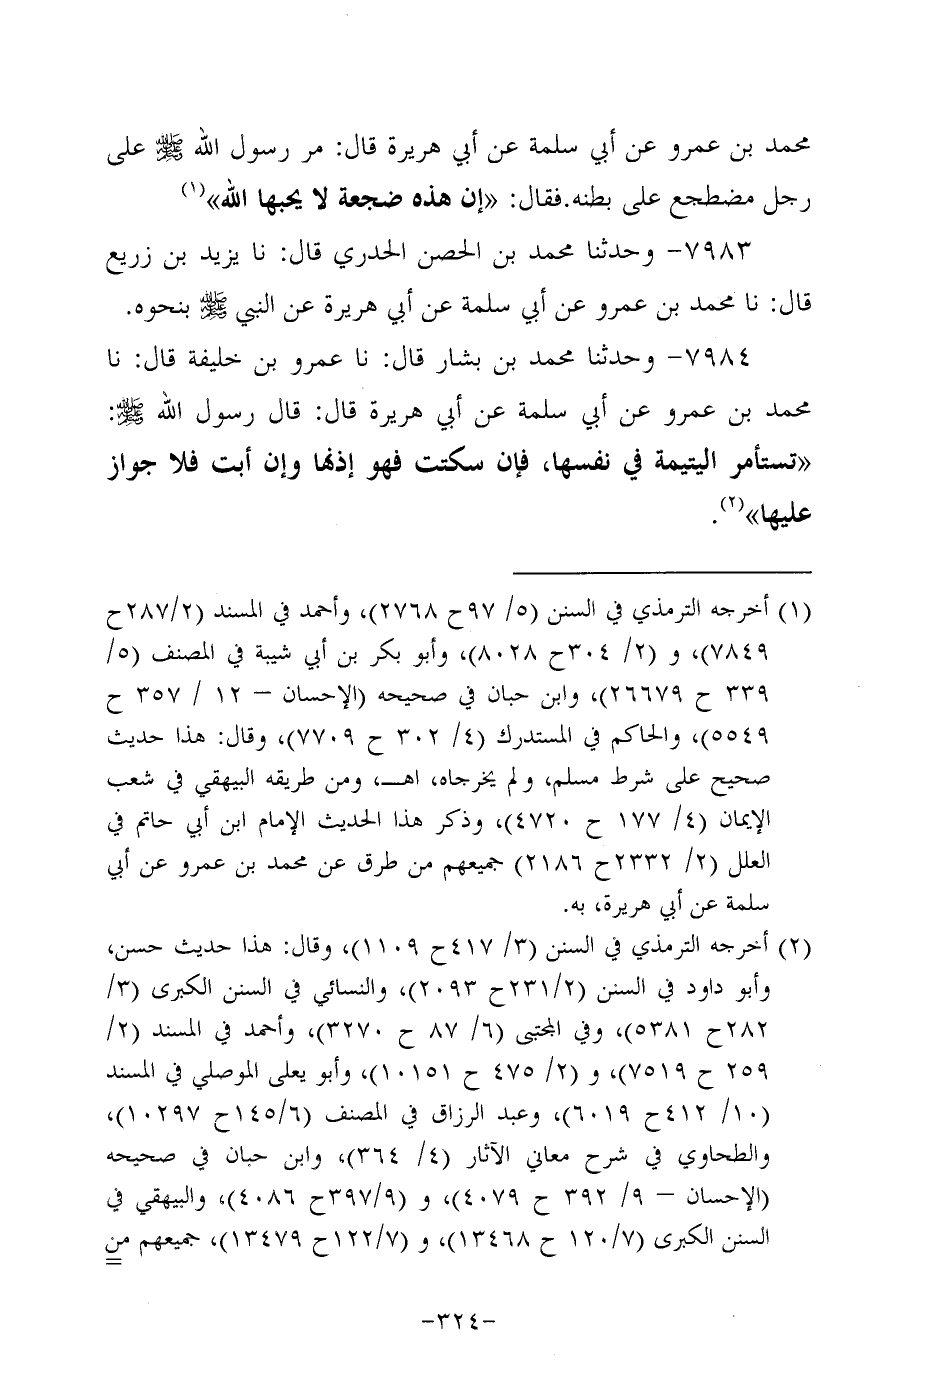 محمد بن عمرو عن أبي سلمة عن أبي هريرة قال: مر رسول الله ﷺ على
رجل مضطجع على بطنه.فقال: «إن هذه ضجعة لا يحبها الله»(١)
٧٩٨٣- وحدثنا محمد بن الحصن الحدري قال: نا يزيد بن زريع
قال: نا محمد بن عمرو عن أبي سلمة عن أبي هريرة عن النبي ﷺ بنحوه.
٧٩٨٤- وحدثنا محمد بن بشار قال: نا عمرو بن خليفة قال: نا
محمد بن عمرو عن أبي سلمة عن أبي هريرة قال: قال رسول الله ﷺ:
«تستأمر اليتيمة في نفسها، فإن سكتت فهو إذنها وإن أبت فلا جواز
عليها»(٢).
(١) أخرجه الترمذي في السنن (٥/ ٩٧ح ٢٧٦٨)، وأحمد في المسند (٢٨٧/٢ح
٧٨٤٩)، و (٢/ ٣٠٤ح ٨٠٢٨)، وأبو بكر بن أبي شيبة في المصنف (٥/
٣٣٩ ح ٢٦٦٧٩)، وابن حبان في صحيحه (الإحسان – ١٢ / ٣٥٧ ح
٥٥٤٩)، والحاكم في المستدرك (٤/ ٣٠٢ ح ٧٧٠٩)، وقال: هذا حديث
صحيح على شرط مسلم، ولم يخرجاه، اهـ، ومن طريقه البيهقي في شعب
الإيمان (٤/ ١٧٧ ح ٤٧٢٠)، وذكر هذا الحديث الإمام ابن أبي حاتم في
العلل (٢/ ٢٣٣٢ح ٢١٨٦) جميعهم من طرق عن محمد بن عمرو عن أبي
سلمة عن أبي هريرة، به.
(٢) أخرجه الترمذي في السنن (٣/ ٤١٧ح ١١٠٩)، وقال: هذا حديث حسن،
وأبو داود في السنن (٢٣١/٢ح ٢٠٩٣)، والنسائي في السنن الكبرى (٣/
٢٨٢ح ٥٣٨١)، وفي المجتبى (٦/ ٨٧ ح ٣٢٧٠)، وأحمد في المسند (٢/
٢٥٩ ح ٧٥١٩)، و (٢/ ٤٧٥ ح ١٠١٥١)، وأبو يعلى الموصلي في المسند
(١٠/ ٤١٢ح ٦٠١٩)، وعبد الرزاق في المصنف (١٤٥/٦ح ١٠٢٩٧)،
والطحاوي في شرح معاني الآثار (٤/ ٣٦٤)، وابن حبان في صحيحه
(الإحسان – ٩/ ٣٩٢ ح ٤٠٧٩)، و (٣٩٧/٩ح ٤٠٨٦)، والبيهقي في
السنن الكبرى (١٢٠/٧ ح ١٣٤٦٨)، و (١٢٢/٧ح ١٣٤٧٩)، جميعهم من
=
-٣٢٤-